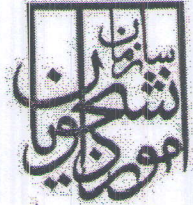 سازمان
امور
دانشجویان